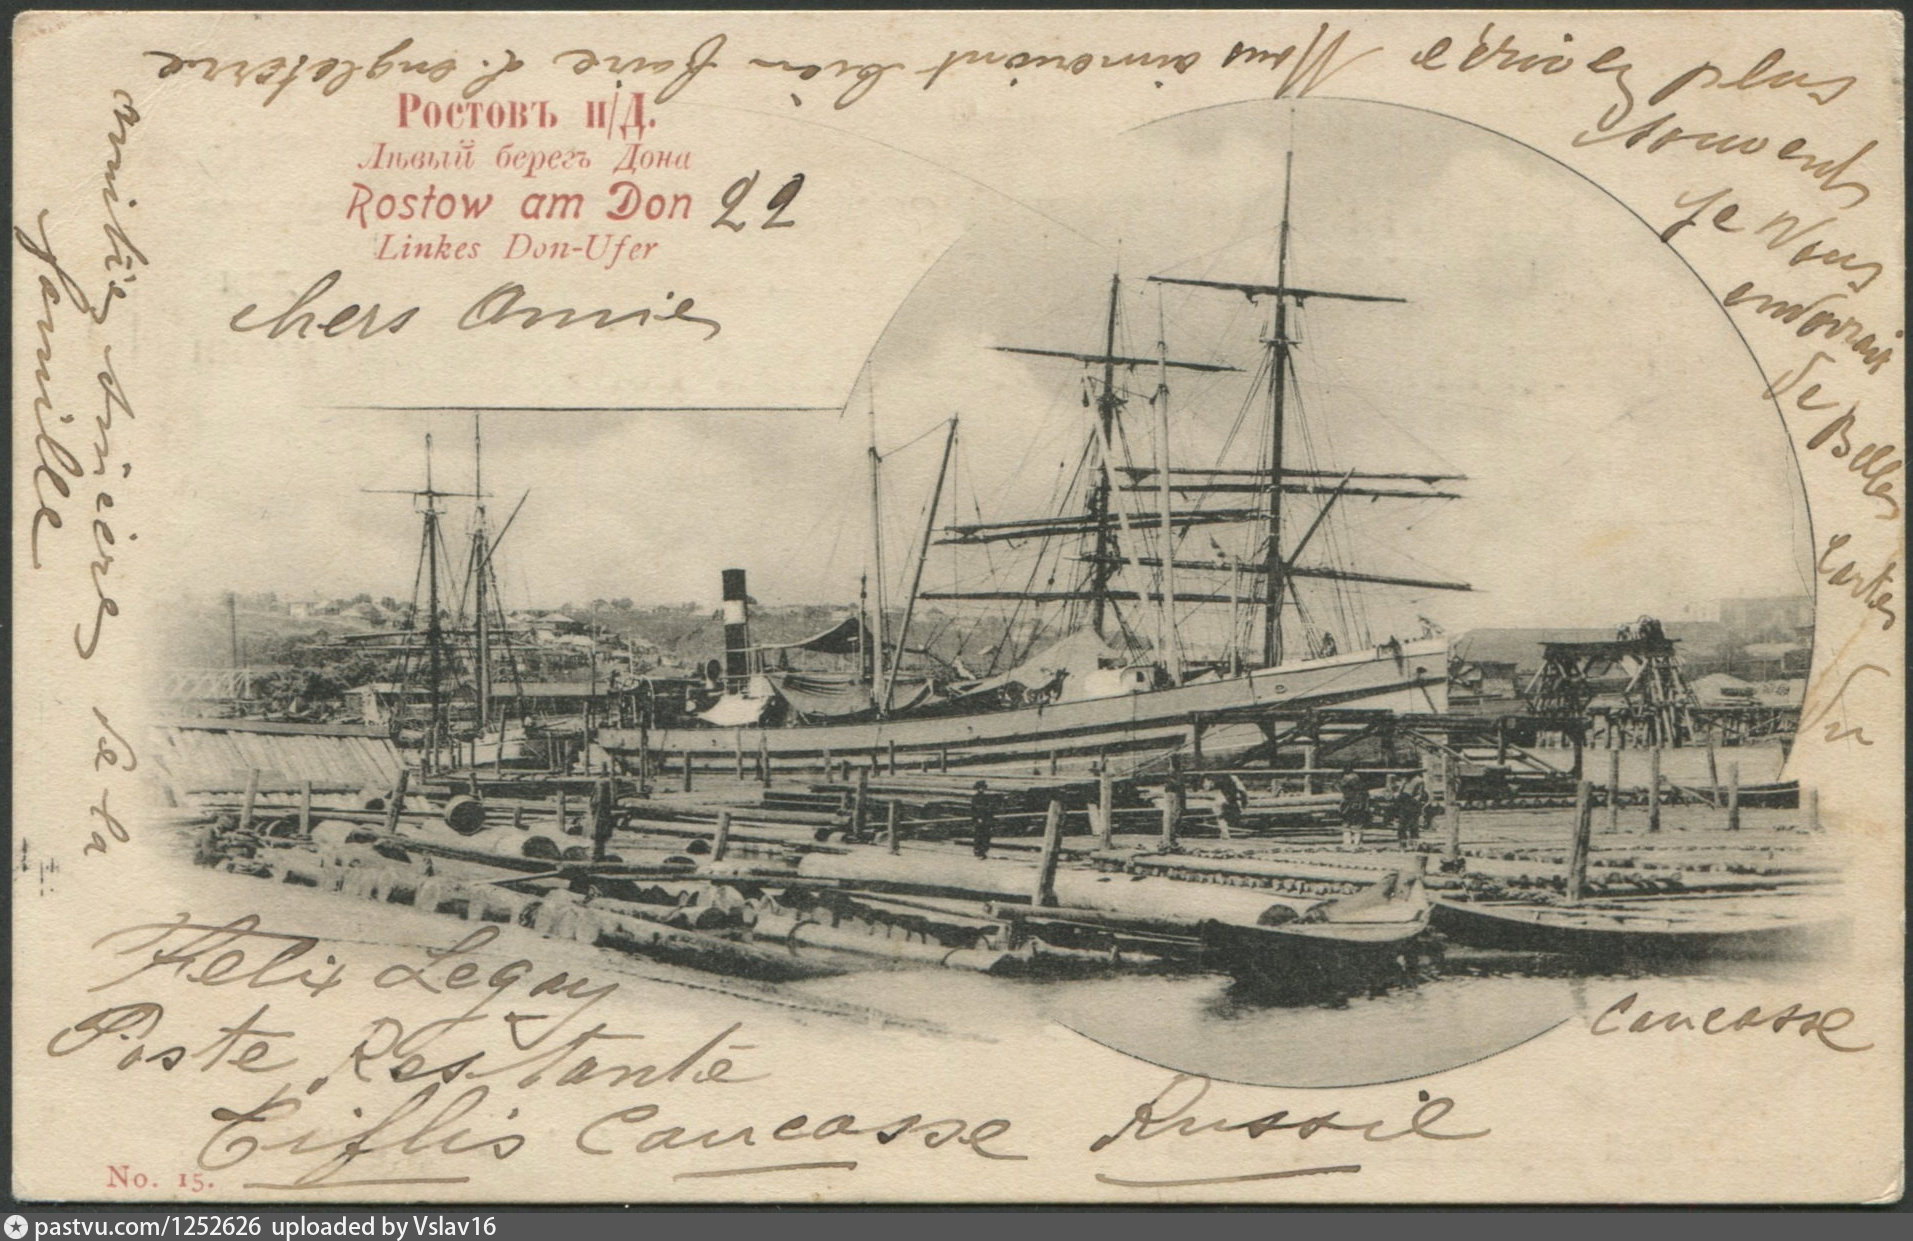 Ростовъ н/Д.
Лѣвый берегъ Дона
Rostow am Don
Linkes Don-Ufer
22
chers Amie
Nous aimeront bien faire L'engleterre
Je Vous
de Belles
Cartes
du
Caucasse
amitiés
de la
famille
Felix Legay
Poste Restante
Tiflis Caucasse Russie
No. 15.
pastvu.com/1252626 uploaded by Vslav16